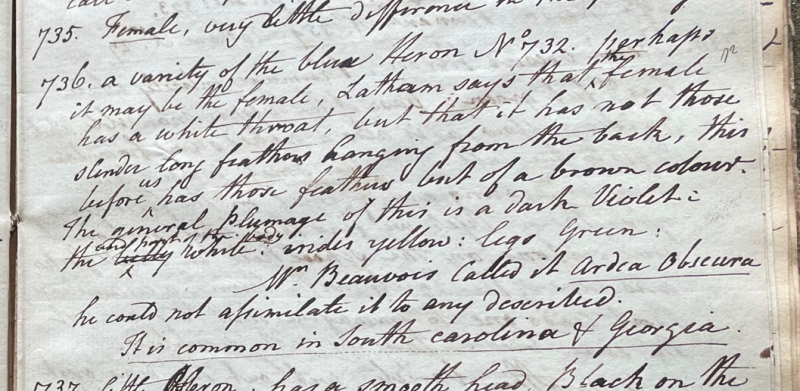 735. Female, very little difference in the
736. a variety of the blue Heron No 732. perhaps
it may be the female, Latham says that the female
has a white throat, but that it has not those
slender long feathers hanging from the back, this
before us has those feathers but of a brown colour.
The general plumage of this is a dark Violet:
the belly and part of the body white: irides yellow: legs Green:
Mr. Beauvois Called it Ardea Obscura
he could not assimilate it to any described.
It is common in South carolina & Georgia.
737. little Heron, has a smooth head, Black on the